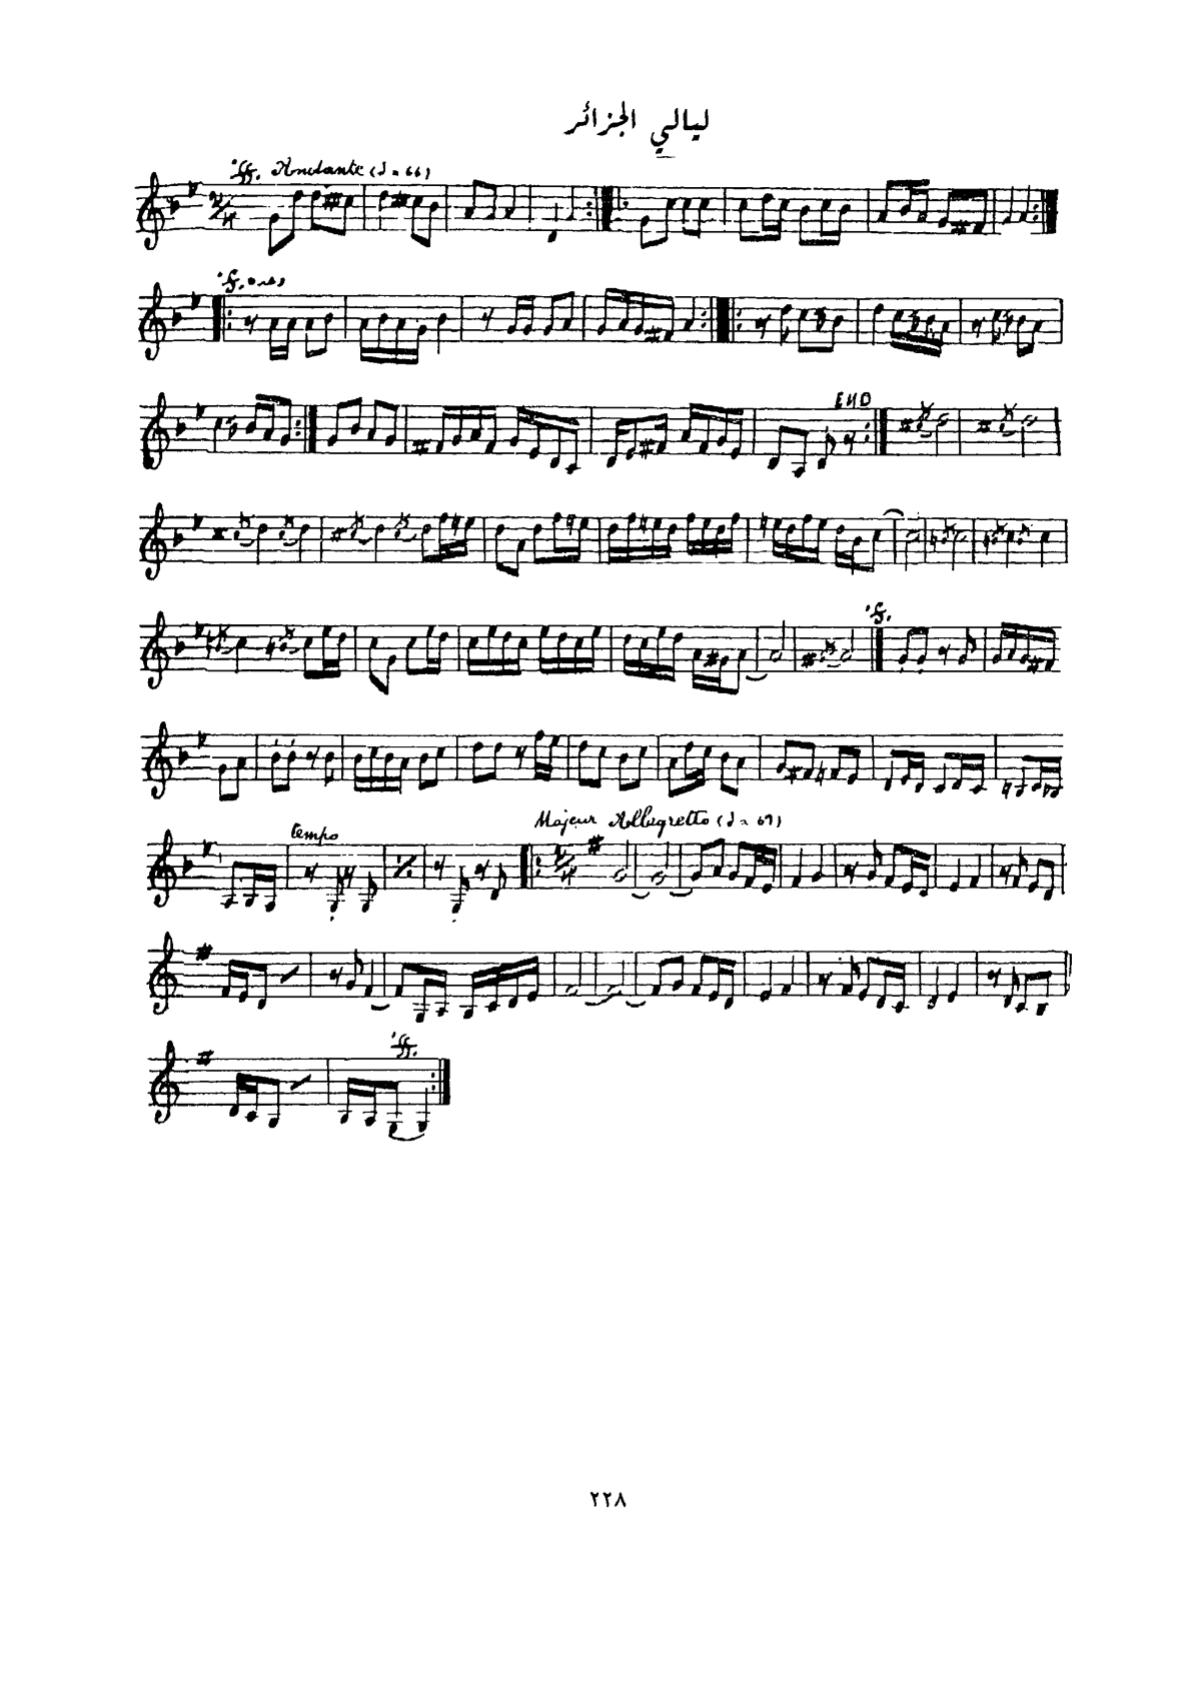 ليالي الجزائر
ff. Andante (♩ = 66)
2/4
f.
END
f.
tempo
Majeur Allegretto (♩ = 69)
2/4
ff.
٢٢٨